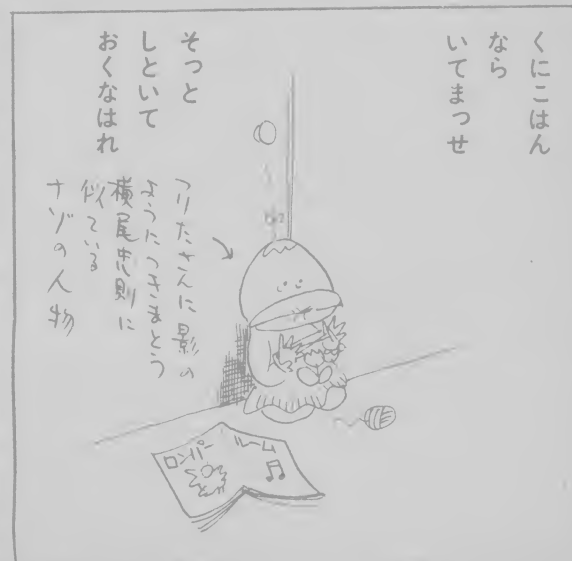 くにこはん
なら
いてまっせ
そっと
しといて
おくなはれ
つりたさんに影の
ようにつきまとう
横尾忠則に
似ている
ナゾの人物
ロンパールーム